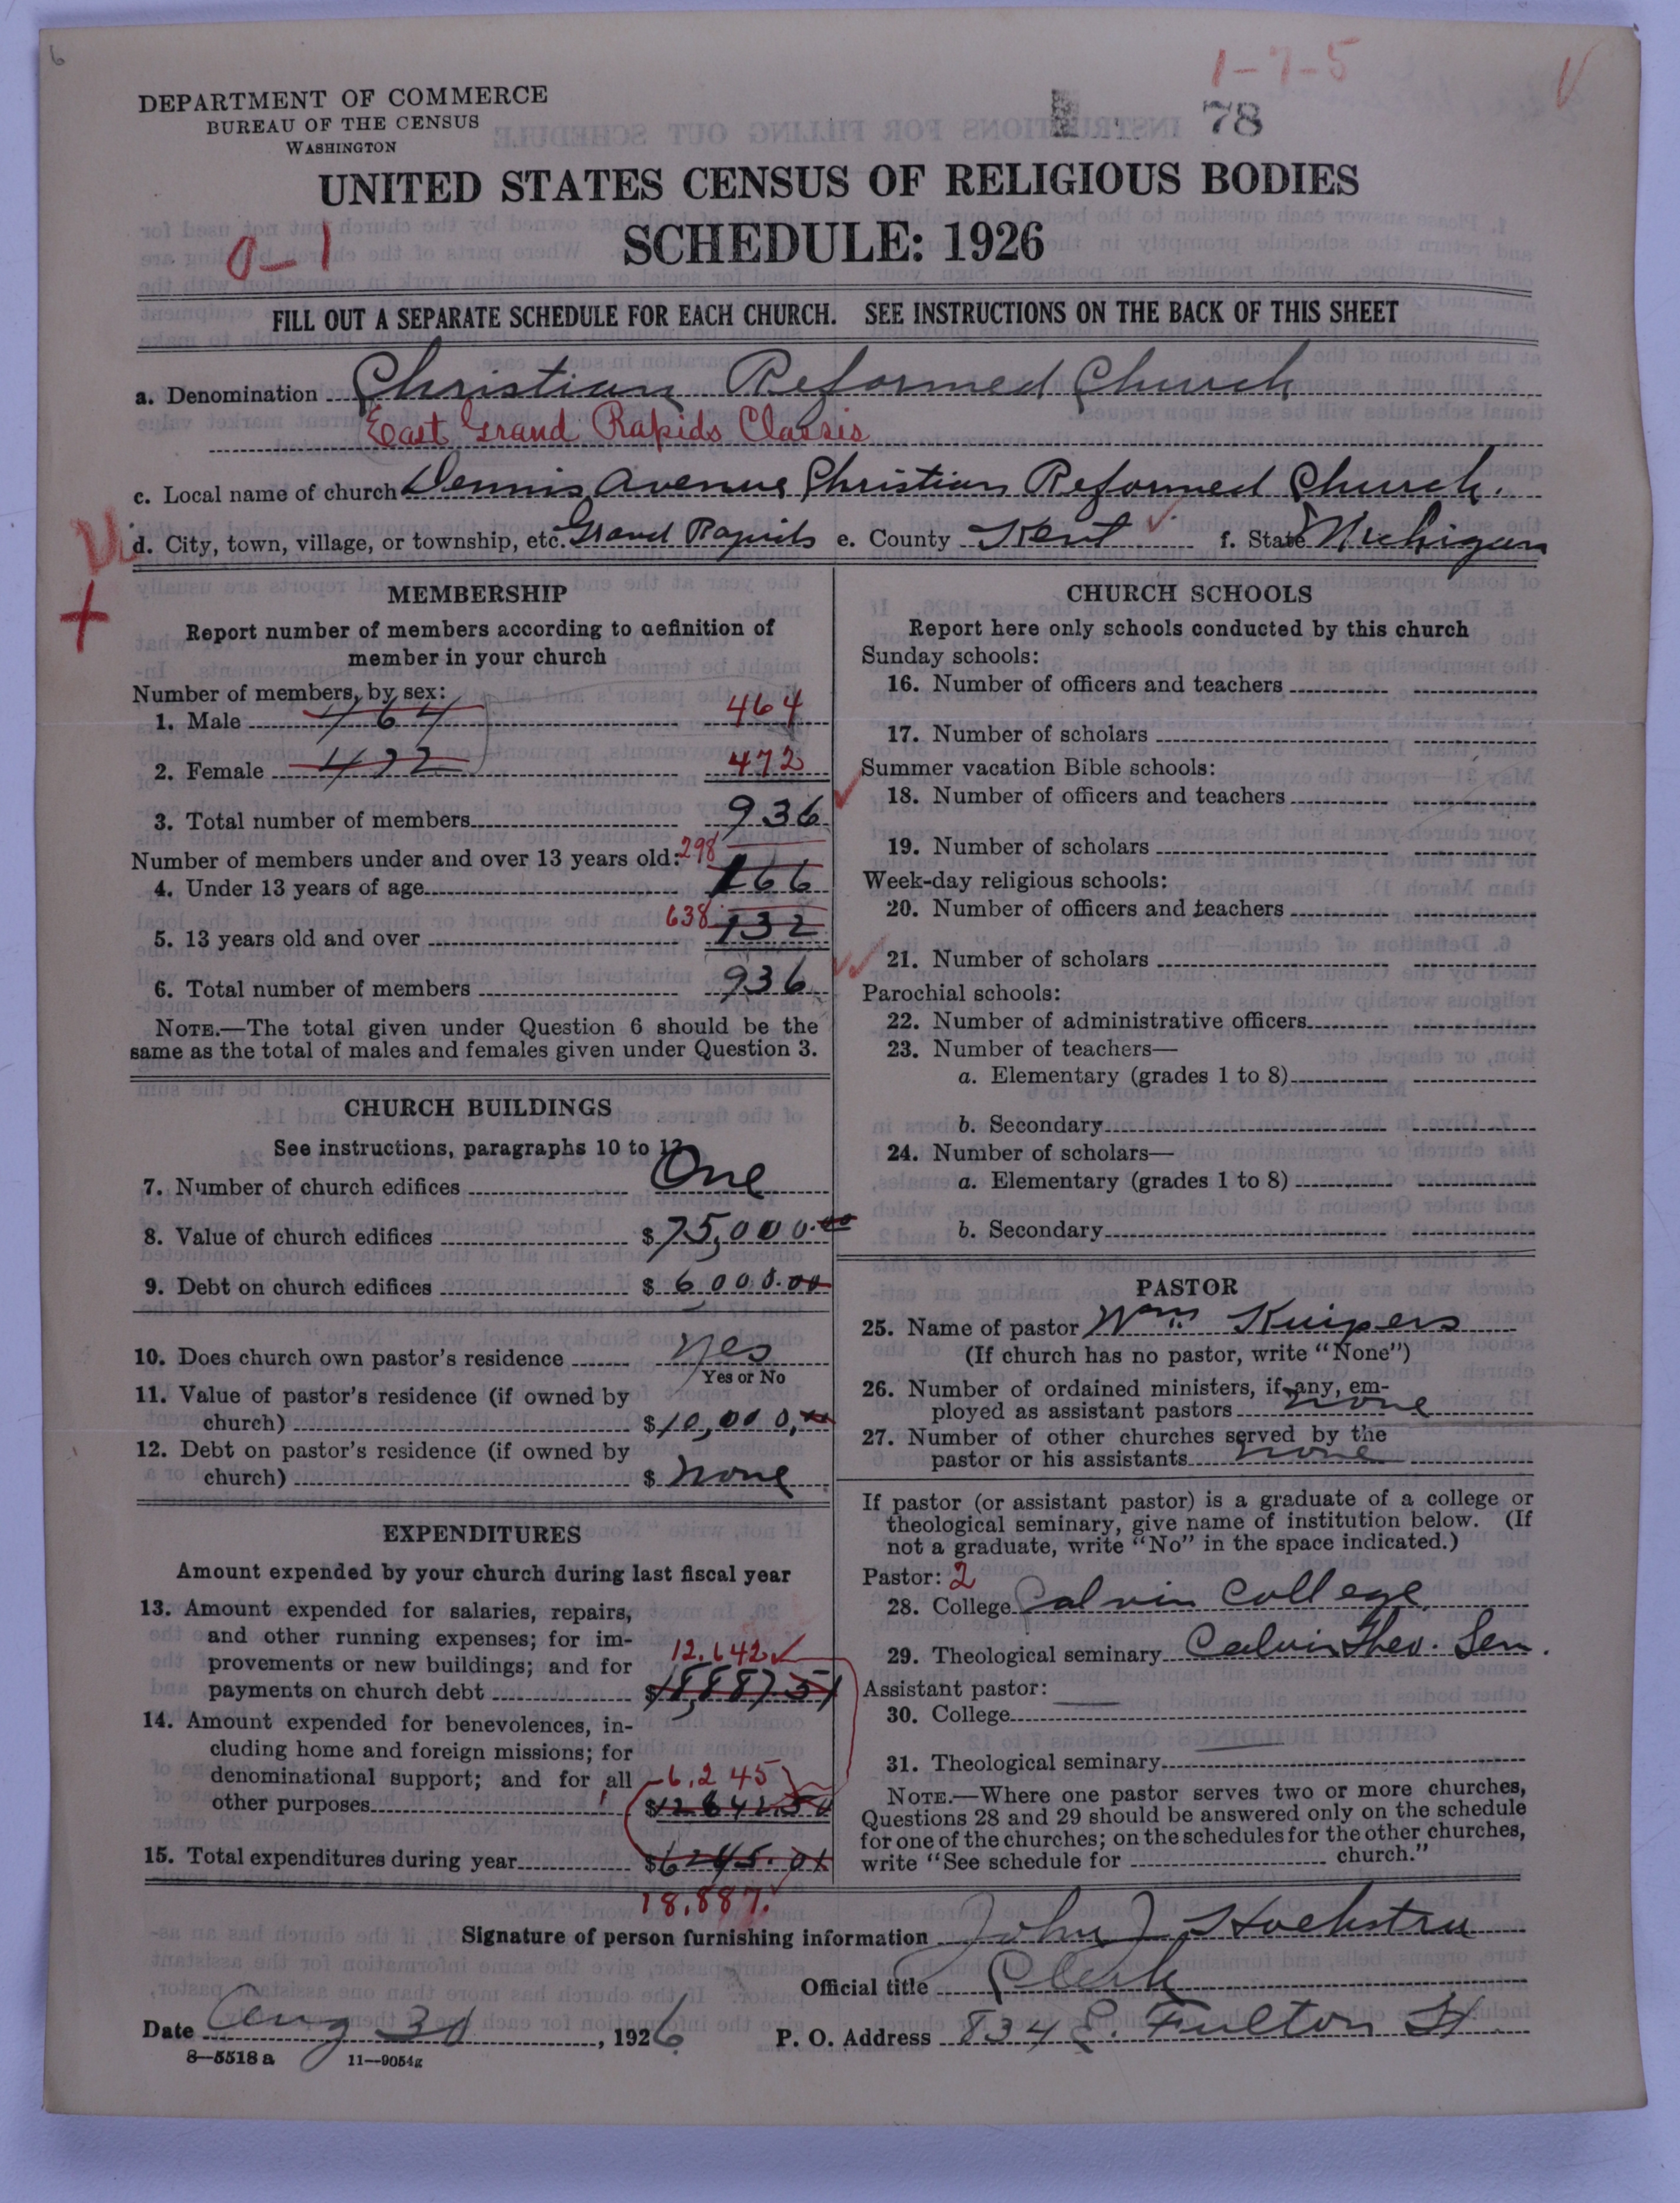 6
1-7-5
V
DEPARTMENT OF COMMERCE
BUREAU OF THE CENSUS
WASHINGTON
78
UNITED STATES CENSUS OF RELIGIOUS BODIES
SCHEDULE: 1926
0-1
FILL OUT A SEPARATE SCHEDULE FOR EACH CHURCH. SEE INSTRUCTIONS ON THE BACK OF THIS SHEET
a. Denomination Christian Reformed Church
East Grand Rapids Classis
c. Local name of church Dennis Avenue Christian Reformed Church.
d. City, town, village, or township, etc. Grand Rapids e. County Kent f. State Michigan
MEMBERSHIP
Report number of members according to definition of
member in your church
Number of members, by sex:
1. Male 464 464
2. Female 472 472
3. Total number of members 936
Number of members under and over 13 years old: 298
4. Under 13 years of age 166
638
5. 13 years old and over 132
6. Total number of members 936
NOTE.—The total given under Question 6 should be the
same as the total of males and females given under Question 3.
CHURCH BUILDINGS
See instructions, paragraphs 10 to 12
7. Number of church edifices One
8. Value of church edifices $75,000.00
9. Debt on church edifices $6000.00
10. Does church own pastor's residence yes
Yes or No
11. Value of pastor's residence (if owned by
church) $10,000,00
12. Debt on pastor's residence (if owned by
church) $ none
EXPENDITURES
Amount expended by your church during last fiscal year
13. Amount expended for salaries, repairs,
and other running expenses; for im-
provements or new buildings; and for 12,642
payments on church debt $18,887.51
14. Amount expended for benevolences, in-
cluding home and foreign missions; for
denominational support; and for all 6,245
other purposes $12642.50
15. Total expenditures during year $6245.01
18,887.
CHURCH SCHOOLS
Report here only schools conducted by this church
Sunday schools:
16. Number of officers and teachers
17. Number of scholars
Summer vacation Bible schools:
18. Number of officers and teachers
19. Number of scholars
Week-day religious schools:
20. Number of officers and teachers
21. Number of scholars
Parochial schools:
22. Number of administrative officers
23. Number of teachers—
a. Elementary (grades 1 to 8)
b. Secondary
24. Number of scholars—
a. Elementary (grades 1 to 8)
b. Secondary
PASTOR
25. Name of pastor Wm. Kuipers
(If church has no pastor, write "None")
26. Number of ordained ministers, if any, em-
ployed as assistant pastors none
27. Number of other churches served by the
pastor or his assistants none
If pastor (or assistant pastor) is a graduate of a college or
theological seminary, give name of institution below. (If
not a graduate, write "No" in the space indicated.)
Pastor: 2
28. College Calvin College
29. Theological seminary Calvin Theo. Sem.
Assistant pastor:
30. College
31. Theological seminary
NOTE.—Where one pastor serves two or more churches,
Questions 28 and 29 should be answered only on the schedule
for one of the churches; on the schedules for the other churches,
write "See schedule for church."
Signature of person furnishing information John J. Hoekstra
Official title Clerk
Date Aug 30, 1926 P. O. Address 834 E. Fulton St.
8—5518 a 11—9054g